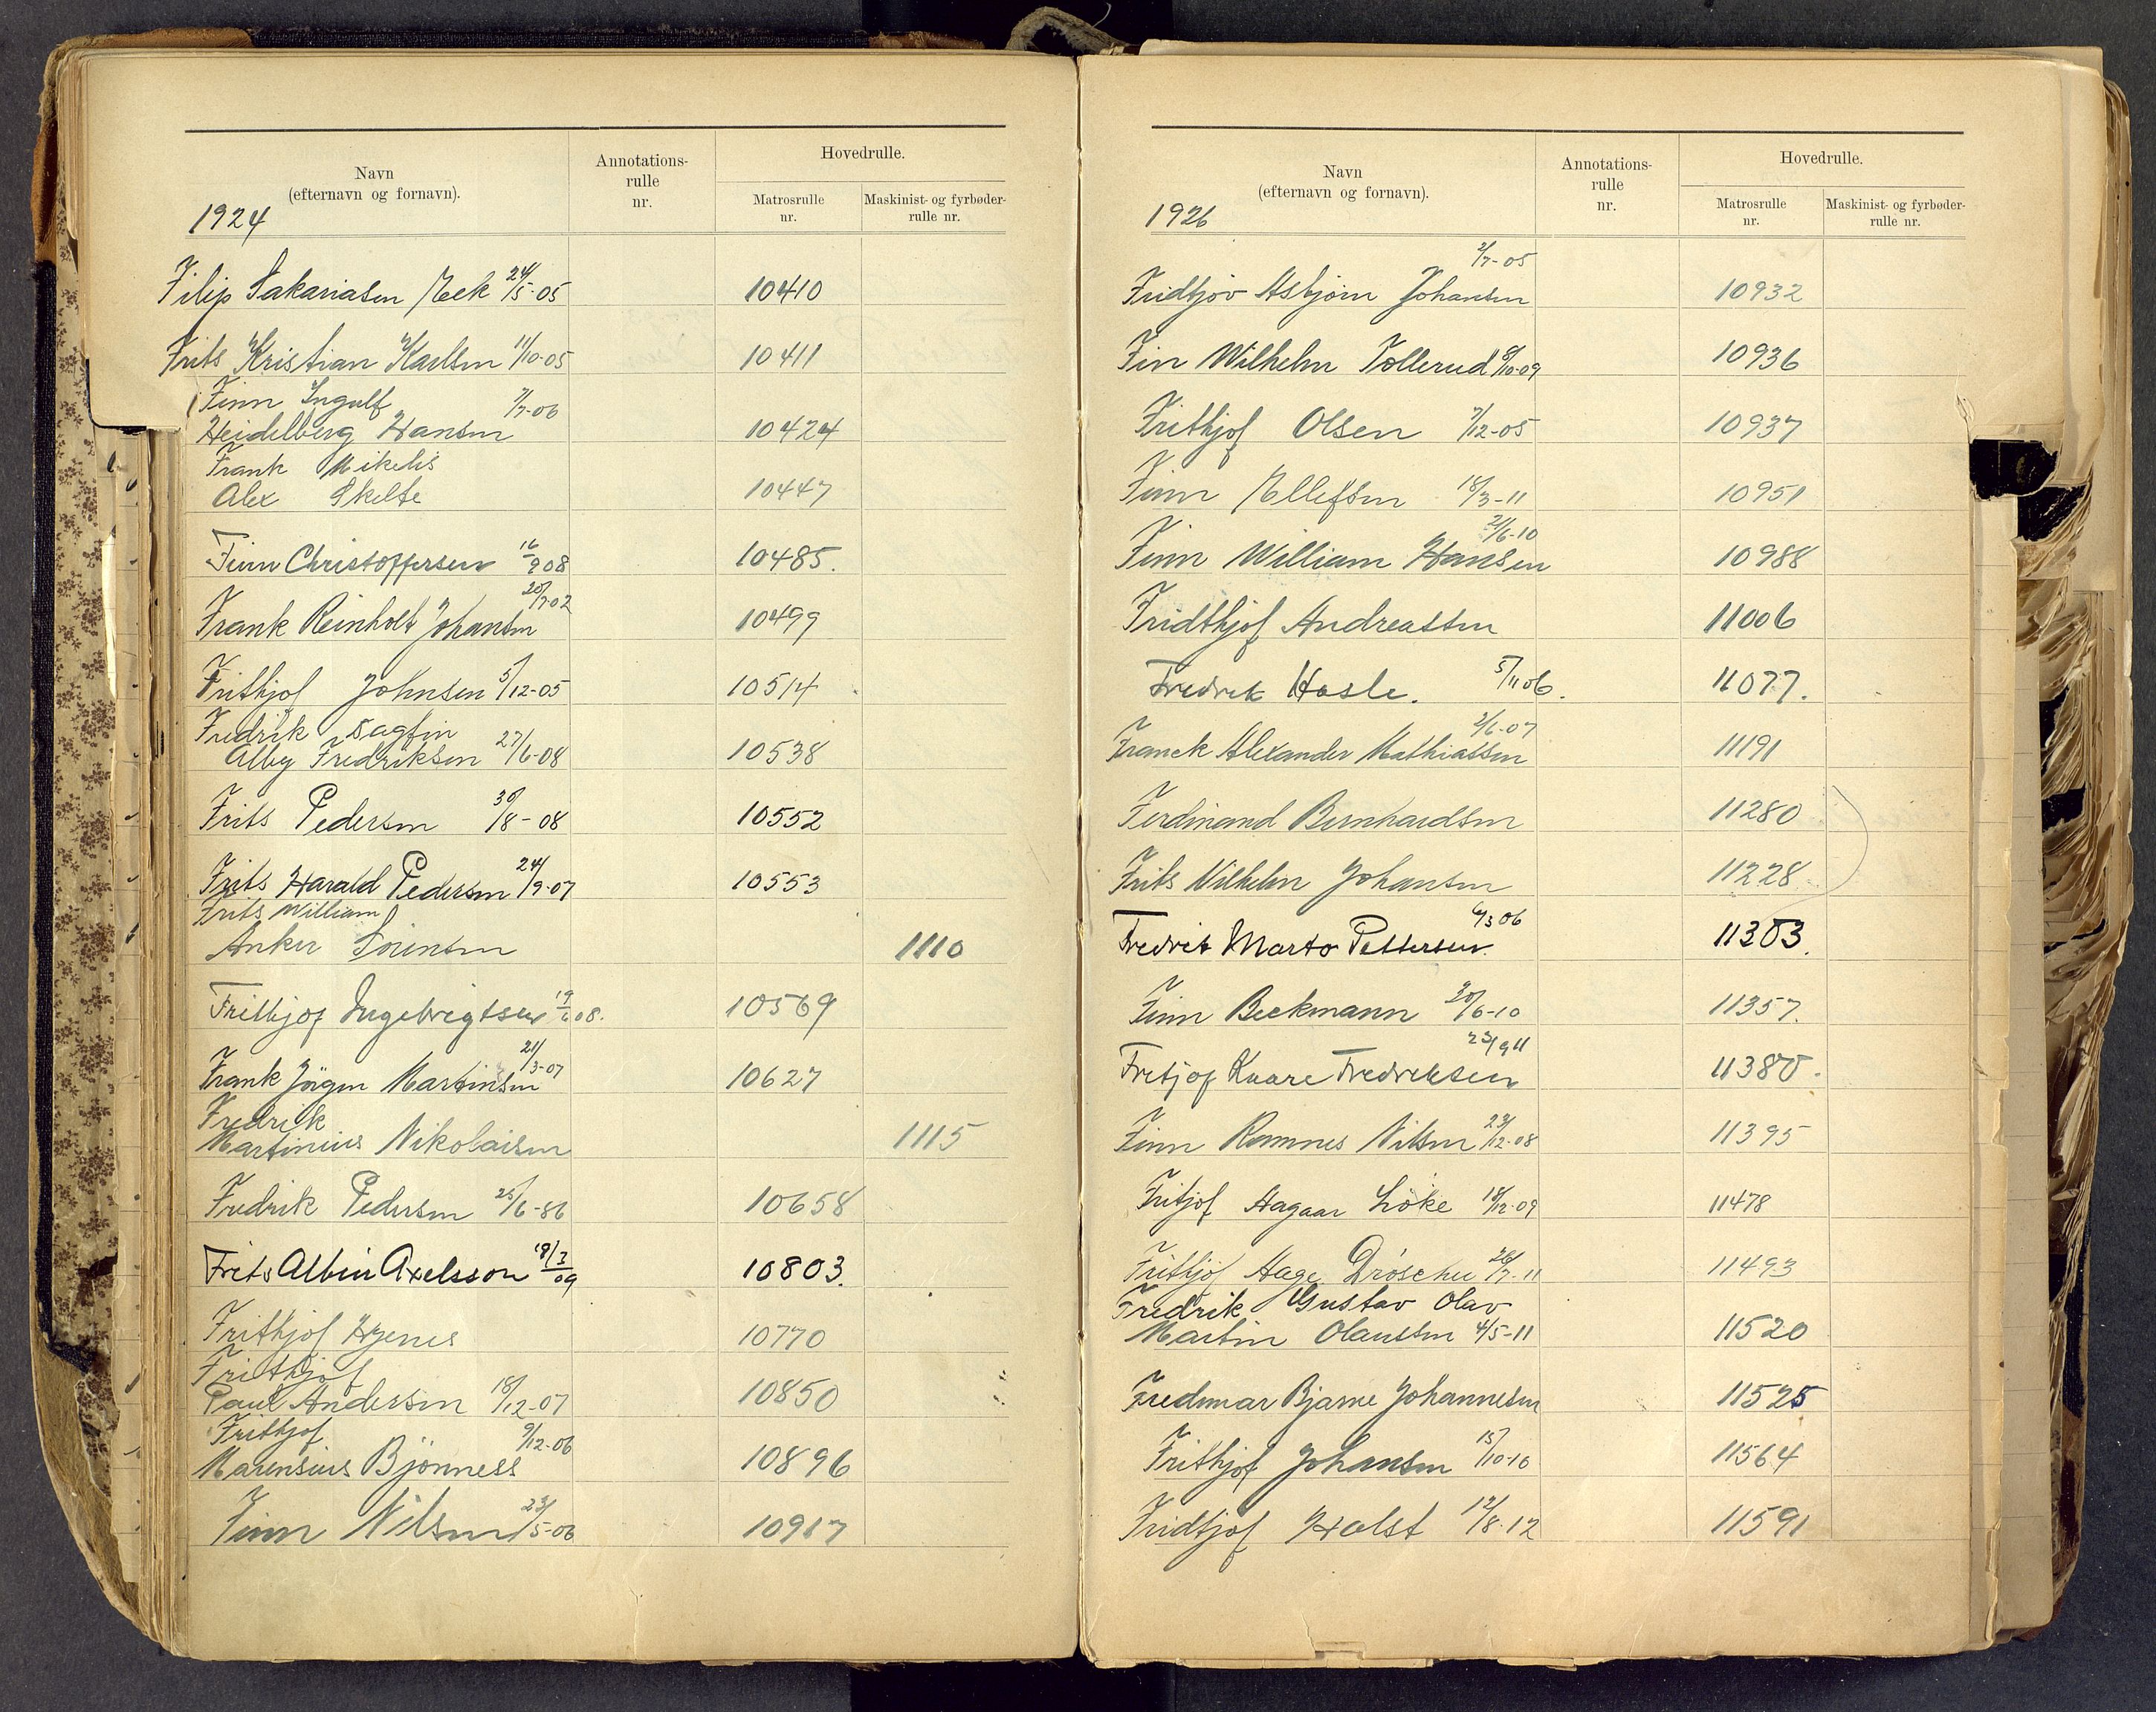 Navn
(efternavn og fornavn).
Annotations-
rulle
nr.
Hovedrulle.
Matrosrulle
nr.
Maskinist- og fyrbøder-
rulle nr.
1924
Filip Sakariasen Eek 24/5-05 10410
Frits Kristian Karlsen 11/10-05 10411
Finn Ingulf 7/7-06
Heidelberg Hansen 10424
Frank Mikelis
Alex Skelte 10447
Finn Christoffersen 16/9 08 10485.
Frank Reinholt Johansen 20/7-02 10499
Frithjof Johnsen 5/12-05 10514
Fredrik Dagfin
Alby Fredriksen 27/6-08 10538
Frits Pedersen 30/8-08 10552
Frits Harald Pedersen 24/9-07 10553
Frits William
Anker Sörensen 1110
Frithjof Ingebrigtsen 19/6 08. 10569
Frank Jörgen Martinsen 21/3-07 10627
Fredrik
Martinius Nikolaisen 1115
Fredrik Pedersen 25/6-86 10658
Frits Albin Axelsson 18/3 09 10803.
Frithjof Hjenes 10770
Frithjof
Paul Andersen 18/12-07 10850
Frithjof 9/12-06
Marensius Bjönness 10896
Finn Nilsen 23/5-06 10917
Navn
(efternavn og fornavn).
Annotations-
rulle
nr.
Hovedrulle.
Matrosrulle
nr.
Maskinist- og fyrbøder-
rulle nr.
1926
2/7-05
Fridtjov Asbjörn Johansen 10932
Fin Wilhelm Tollerud 8/10-09 10936
Frithjof Olsen 7/12-05 10937
Finn Ellefsen 18/3-11 10951
2/6-10
Finn William Hansen 10988
Fridthjof Andreassen 11006
Fredrik Hasle. 5/11 06. 11077.
2/6-07
Franck Alexander Mathiassen 11191
Ferdinand Bernhardsen 11280
Frits Wilhelm Johansen 11228
6/3 06
Fredrik Marto Pettersen. 11303.
Finn Beckmann 30/6-10 11357.
23/9 11
Fritjof Kaare Fredriksen 11380.
Finn Ramnes Nilsen 23/12-08 11395
Fritjof Aagaar Löke 18/12-09 11478
Frithjof Aage Dröscher 26/7-11 11493
Fredrik Gustav Olav
Martin Olaussen 4/5-11 11520
Fredmar Bjarne Johannesen 11525
Frithjof Johansen 15/10-10 11564
Fridtjof Holst 12/8-12 11591